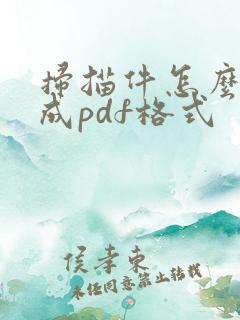 掃描件怎麼
成pdf格式
侯孝東
未经同意禁止转载